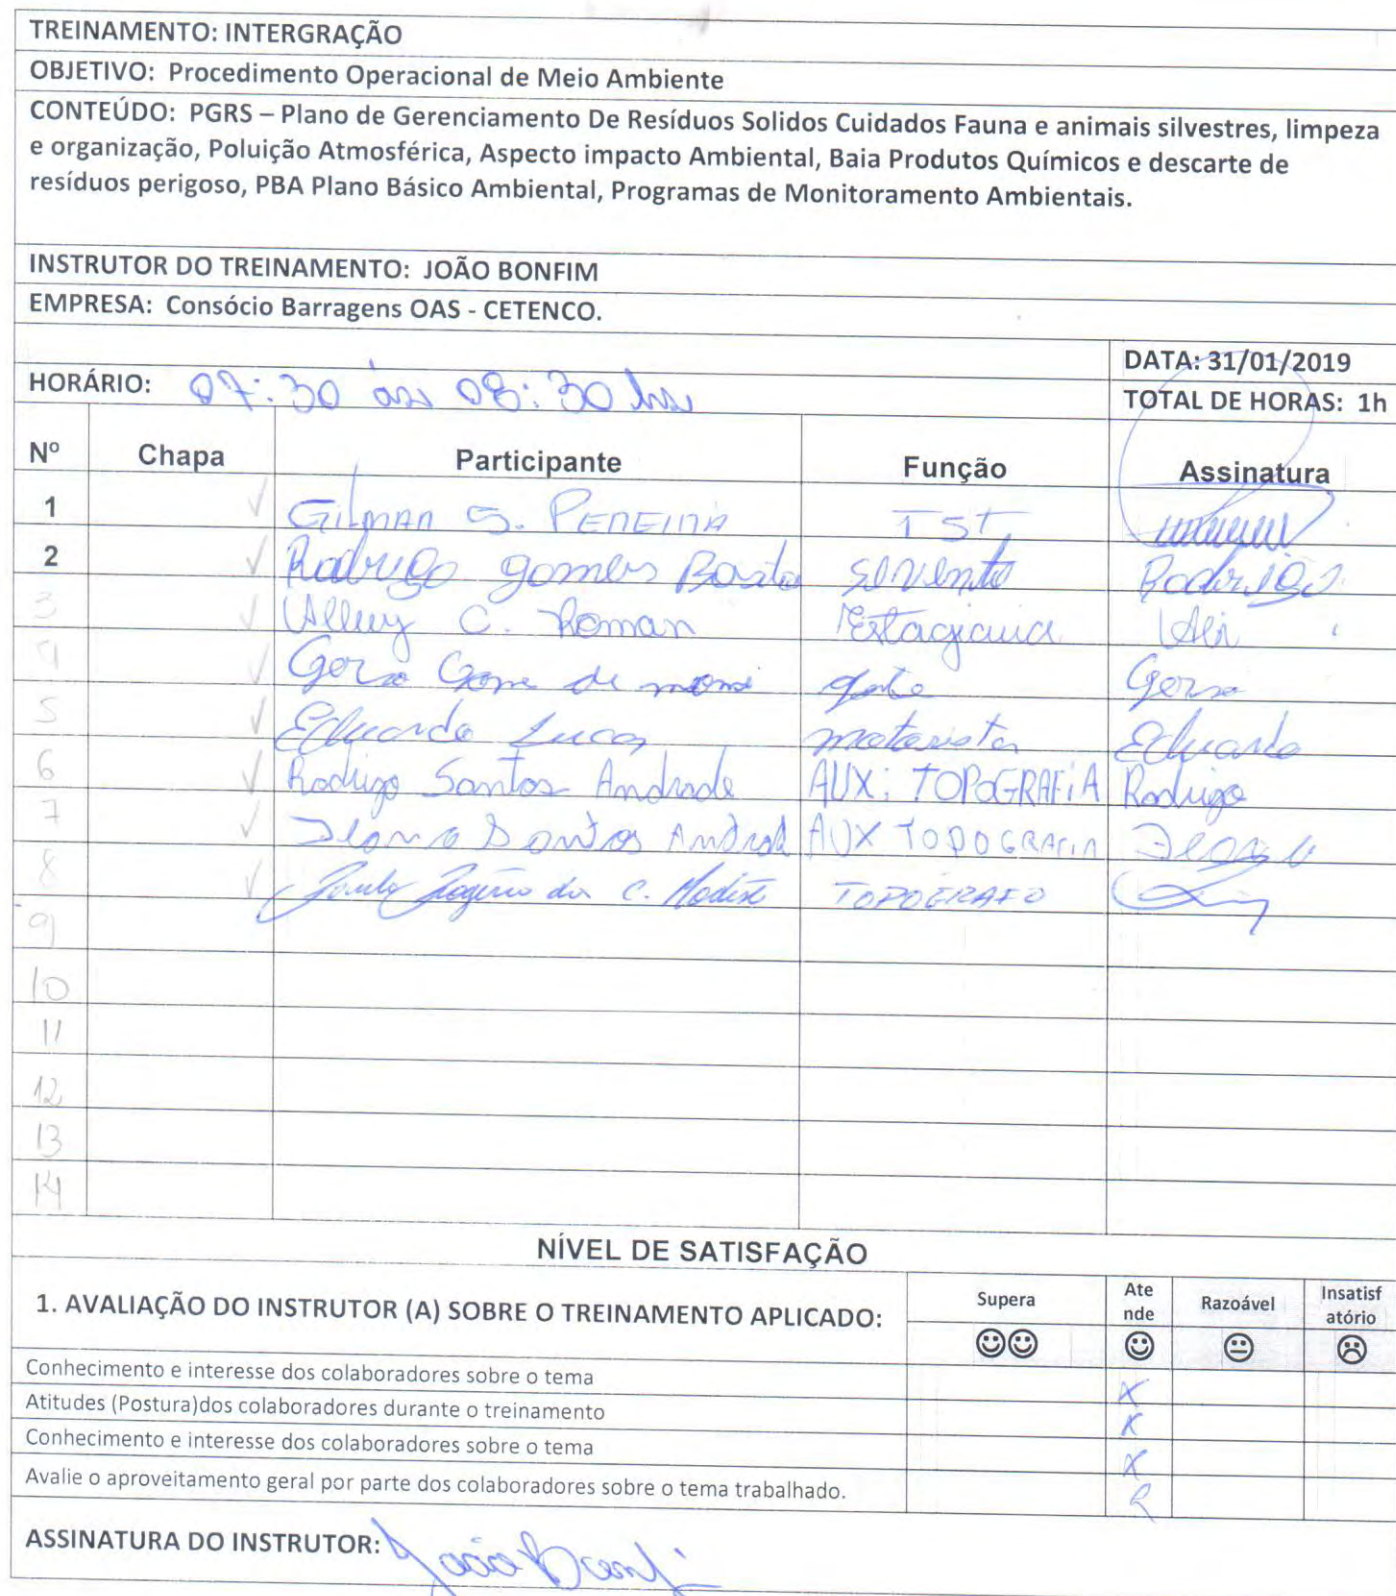 TREINAMENTO: INTERGRAÇÃO
OBJETIVO: Procedimento Operacional de Meio Ambiente
CONTEÚDO: PGRS – Plano de Gerenciamento De Resíduos Solidos Cuidados Fauna e animais silvestres, limpeza
e organização, Poluição Atmosférica, Aspecto impacto Ambiental, Baia Produtos Químicos e descarte de
resíduos perigoso, PBA Plano Básico Ambiental, Programas de Monitoramento Ambientais.
INSTRUTOR DO TREINAMENTO: JOÃO BONFIM
EMPRESA: Consócio Barragens OAS - CETENCO.
DATA: 31/01/2019
HORÁRIO: 07:30 às 08:30 hs
TOTAL DE HORAS: 1h
Nº Chapa Participante Função Assinatura
1 GILMAR S. PEREIRA TST
2 Rodrigo gomes servente Rodrigo
3 C. Roman Estagiaria
4 de
5 Eduardo Lucas motorista Eduardo
6 Rodrigo Santos Andrade AUX: TOPOGRAFiA Rodrigo
7 Santos AUX TOPOGRAFIA
8 Paulo Rogério da C. Modesto TOPOGRAFO
9
10
11
12
13
14
NÍVEL DE SATISFAÇÃO
1. AVALIAÇÃO DO INSTRUTOR (A) SOBRE O TREINAMENTO APLICADO: Supera Ate nde Razoável Insatisf atório
Conhecimento e interesse dos colaboradores sobre o tema X
Atitudes (Postura)dos colaboradores durante o treinamento X
Conhecimento e interesse dos colaboradores sobre o tema X
Avalie o aproveitamento geral por parte dos colaboradores sobre o tema trabalhado.
ASSINATURA DO INSTRUTOR: João